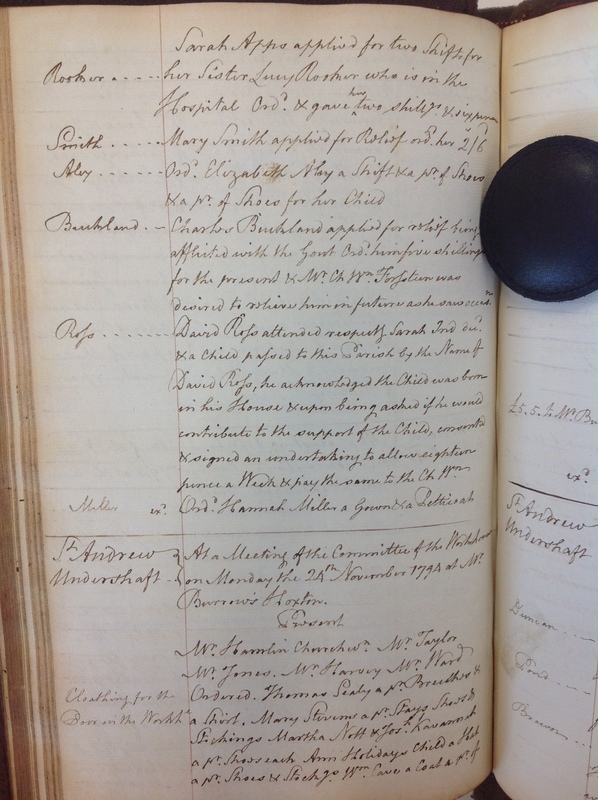 Sarah Apps applied for two Shifts for
Rooker . . . . . her Sister Lucy Rooker who is in the
Hospital Ordd. & gave her two shillgs. & sixpence
Smith . . . . . Mary Smith applied for Relief ordd. her 2/6
Aley . . . . . . Ordd. Elizabeth Aley a Shift & a pr. of Shoes
& a pr. of Shoes for her Child
Buckland . . Charles Buckland applied for relief being
afflicted with the Gout Ordd. him five shillings
for the present & Mr. Ch Wn. Forsteen was
desired to relieve him in future as he saw occn.
Ross . . . . . . . David Ross attended respectg. Sarah
& a Child passed to this Parish by the Name of
David Ross, he acknowledged the Child was born
in his House & upon being asked if he would
contribute to the support of the Child, consented
& signed an undertaking to allow eighteen
pence a Week & pay the same to the Ch Wn.
Miller ex. Ordd. Hannah Miller a Gown & a Petticoat
St. Andrew } At a Meeting of the Committee of the Workhouse
Undershaft } on Monday the 24th November 1794 at Mr.
Burrow's Hoxton.
Present
Mr. Hamlin Churchwn. Mr. Taylor
Mr. Jones. Mr. Harvey Mr. Ward
Cloathing for the Ordered. Thomas Sealy a pr. Breeches &
Poor in the Workhe. a Shirt. Mary Stevens a pr. Stays Shoes &
Stockings Martha Nott & Josh. Kavannah
a pr. Shoes each Ann Holidays Child a
a pr. Shoes & Stockgs. Wm. Cave a Coat a pr. of
£5.5. to Mr.
exd.
St. Andrew
Undershaft
Duncan . . .
Pond . . . .